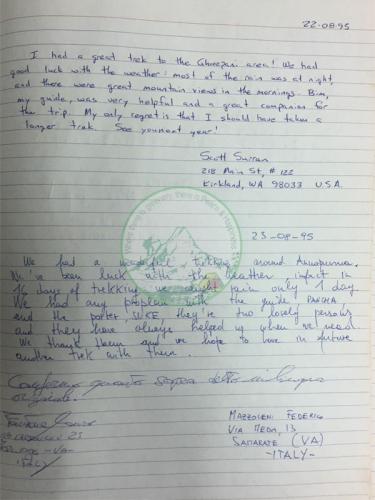 22-08-95
I had a great trek to the Ghorepani area! We had
good luck with the weather: most of the rain was at night,
and there were great mountain views in the mornings. Bim,
my guide, was very helpful and a great companion for
the trip. My only regret is that I should have taken a
longer trek. See you next year!
Scott
218 Main St, # 122
Kirkland, WA 98033 U.S.A.
23-08-95
We had a wonderful trekking around Annapurna.
We've been luck with the weather infact in
16 days of trekking we caught rain only 1 day.
We had any problem with the guide
and the porter they're two lovely persons
and they have always helped us when we need.
We thank them and we hope to have in future
another trek with them.
Confermo quanto sopra detto in lingua
originale.
MAZZOLENI FEDERICO
VIA MEDA, 13
SAMARATE (VA)
-ITALY-
ITALY